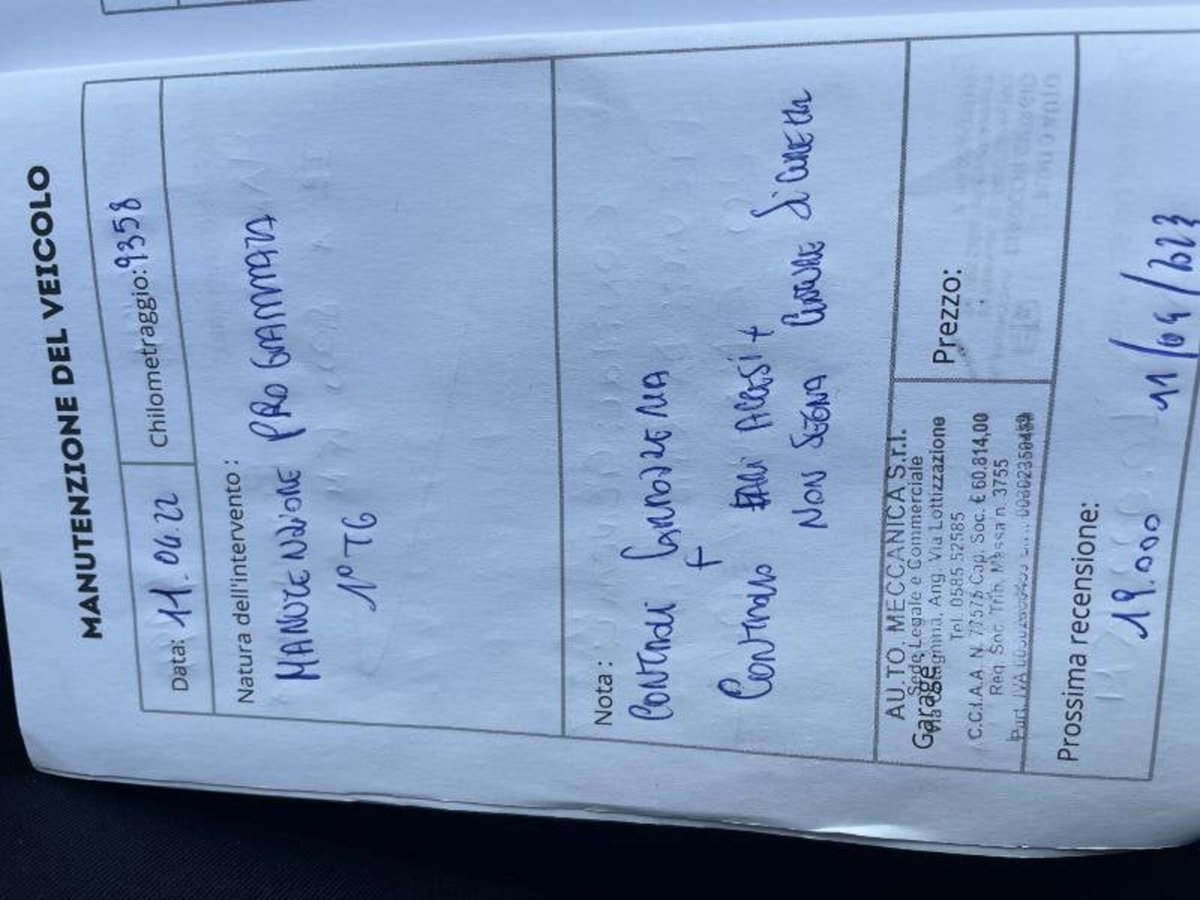 MANUTENZIONE DEL VEICOLO
Data: 11.04.22
Chilometraggio: 9358
Natura dell'intervento :
MANUTENZIONE PROGRAMMATA
1° TG
Nota :
CONTROLLI CARROZZERIA
+
CONTROLLO FARI ACCESI +
NON SEGNA CINTURE SICUREZZA
AU.TO. MECCANICA S.r.l.
Sede Legale e Commerciale
Ang. Via Lottizzazione
Tel. 0585 52585
C.C.I.A.A. N. 77575 Cap. Soc. € 60.814,00
Reg. Soc. Trib. Massa n. 3755
Part. IVA
Garage:
Prezzo:
Prossima recensione:
19.000
11/04/2023